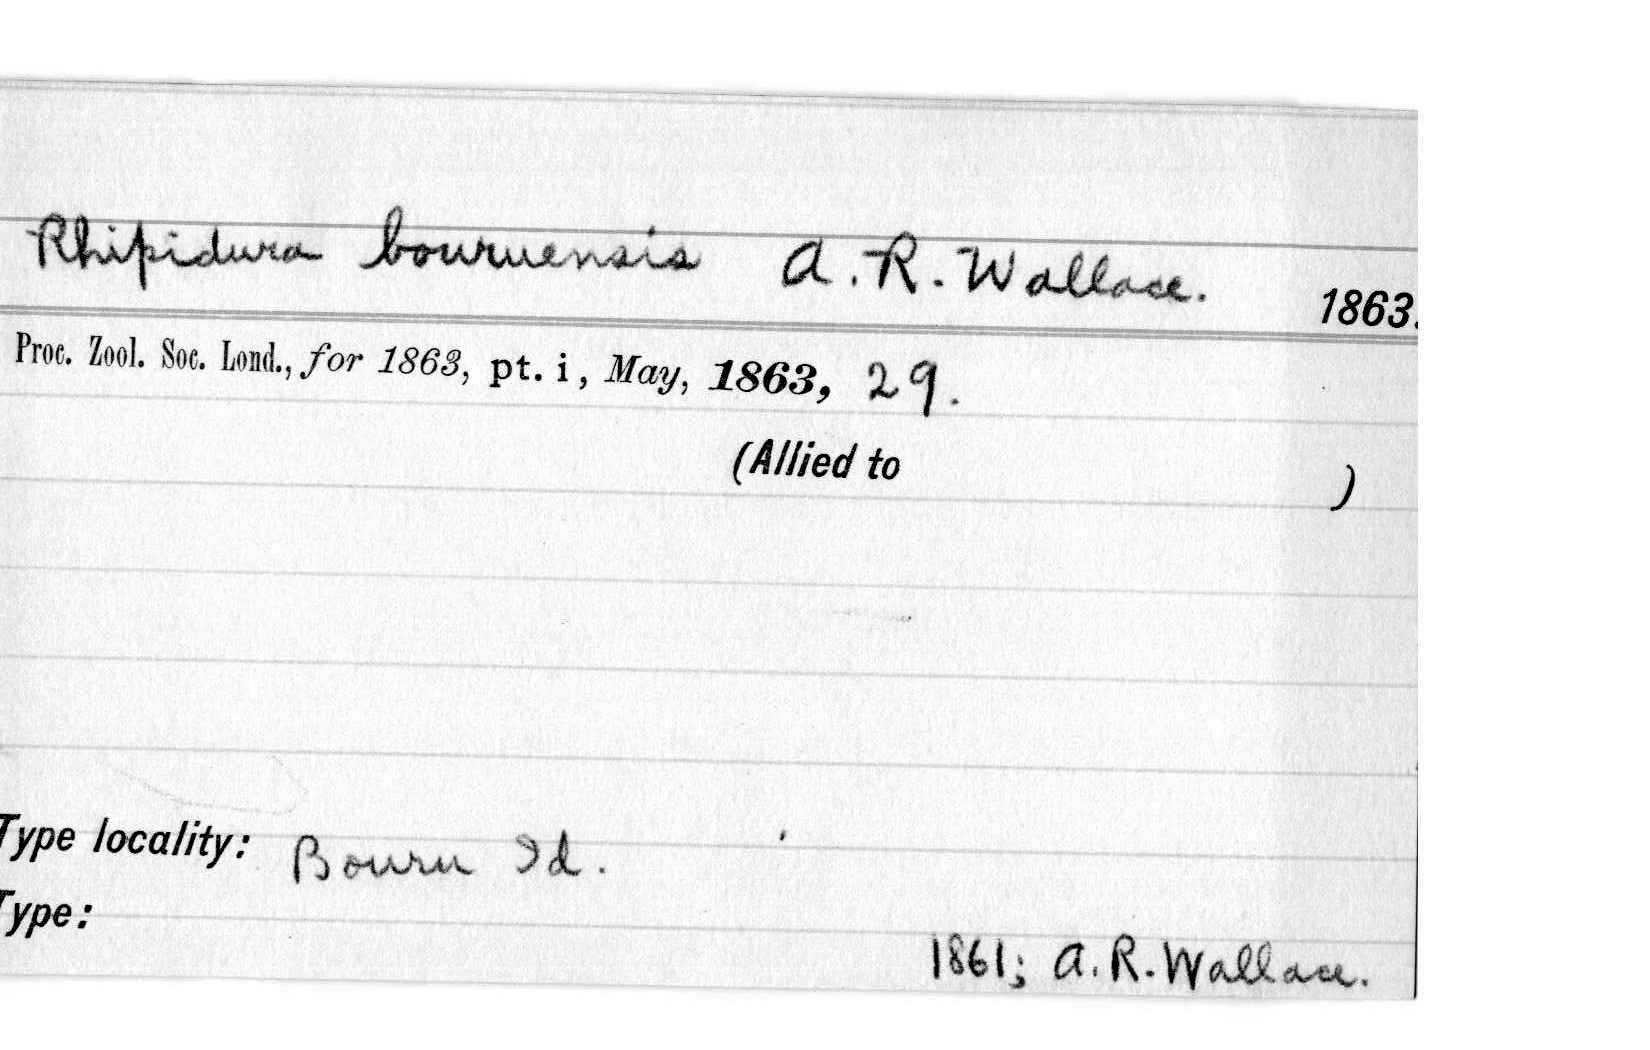 Rhipidura bouruensis A.R. Wallace. 1863.
Proc. Zool. Soc. Lond., for 1863, pt. i, May, 1863, 29.
(Allied to )
Type locality: Bouru Id.
Type:
1861; A.R. Wallace.